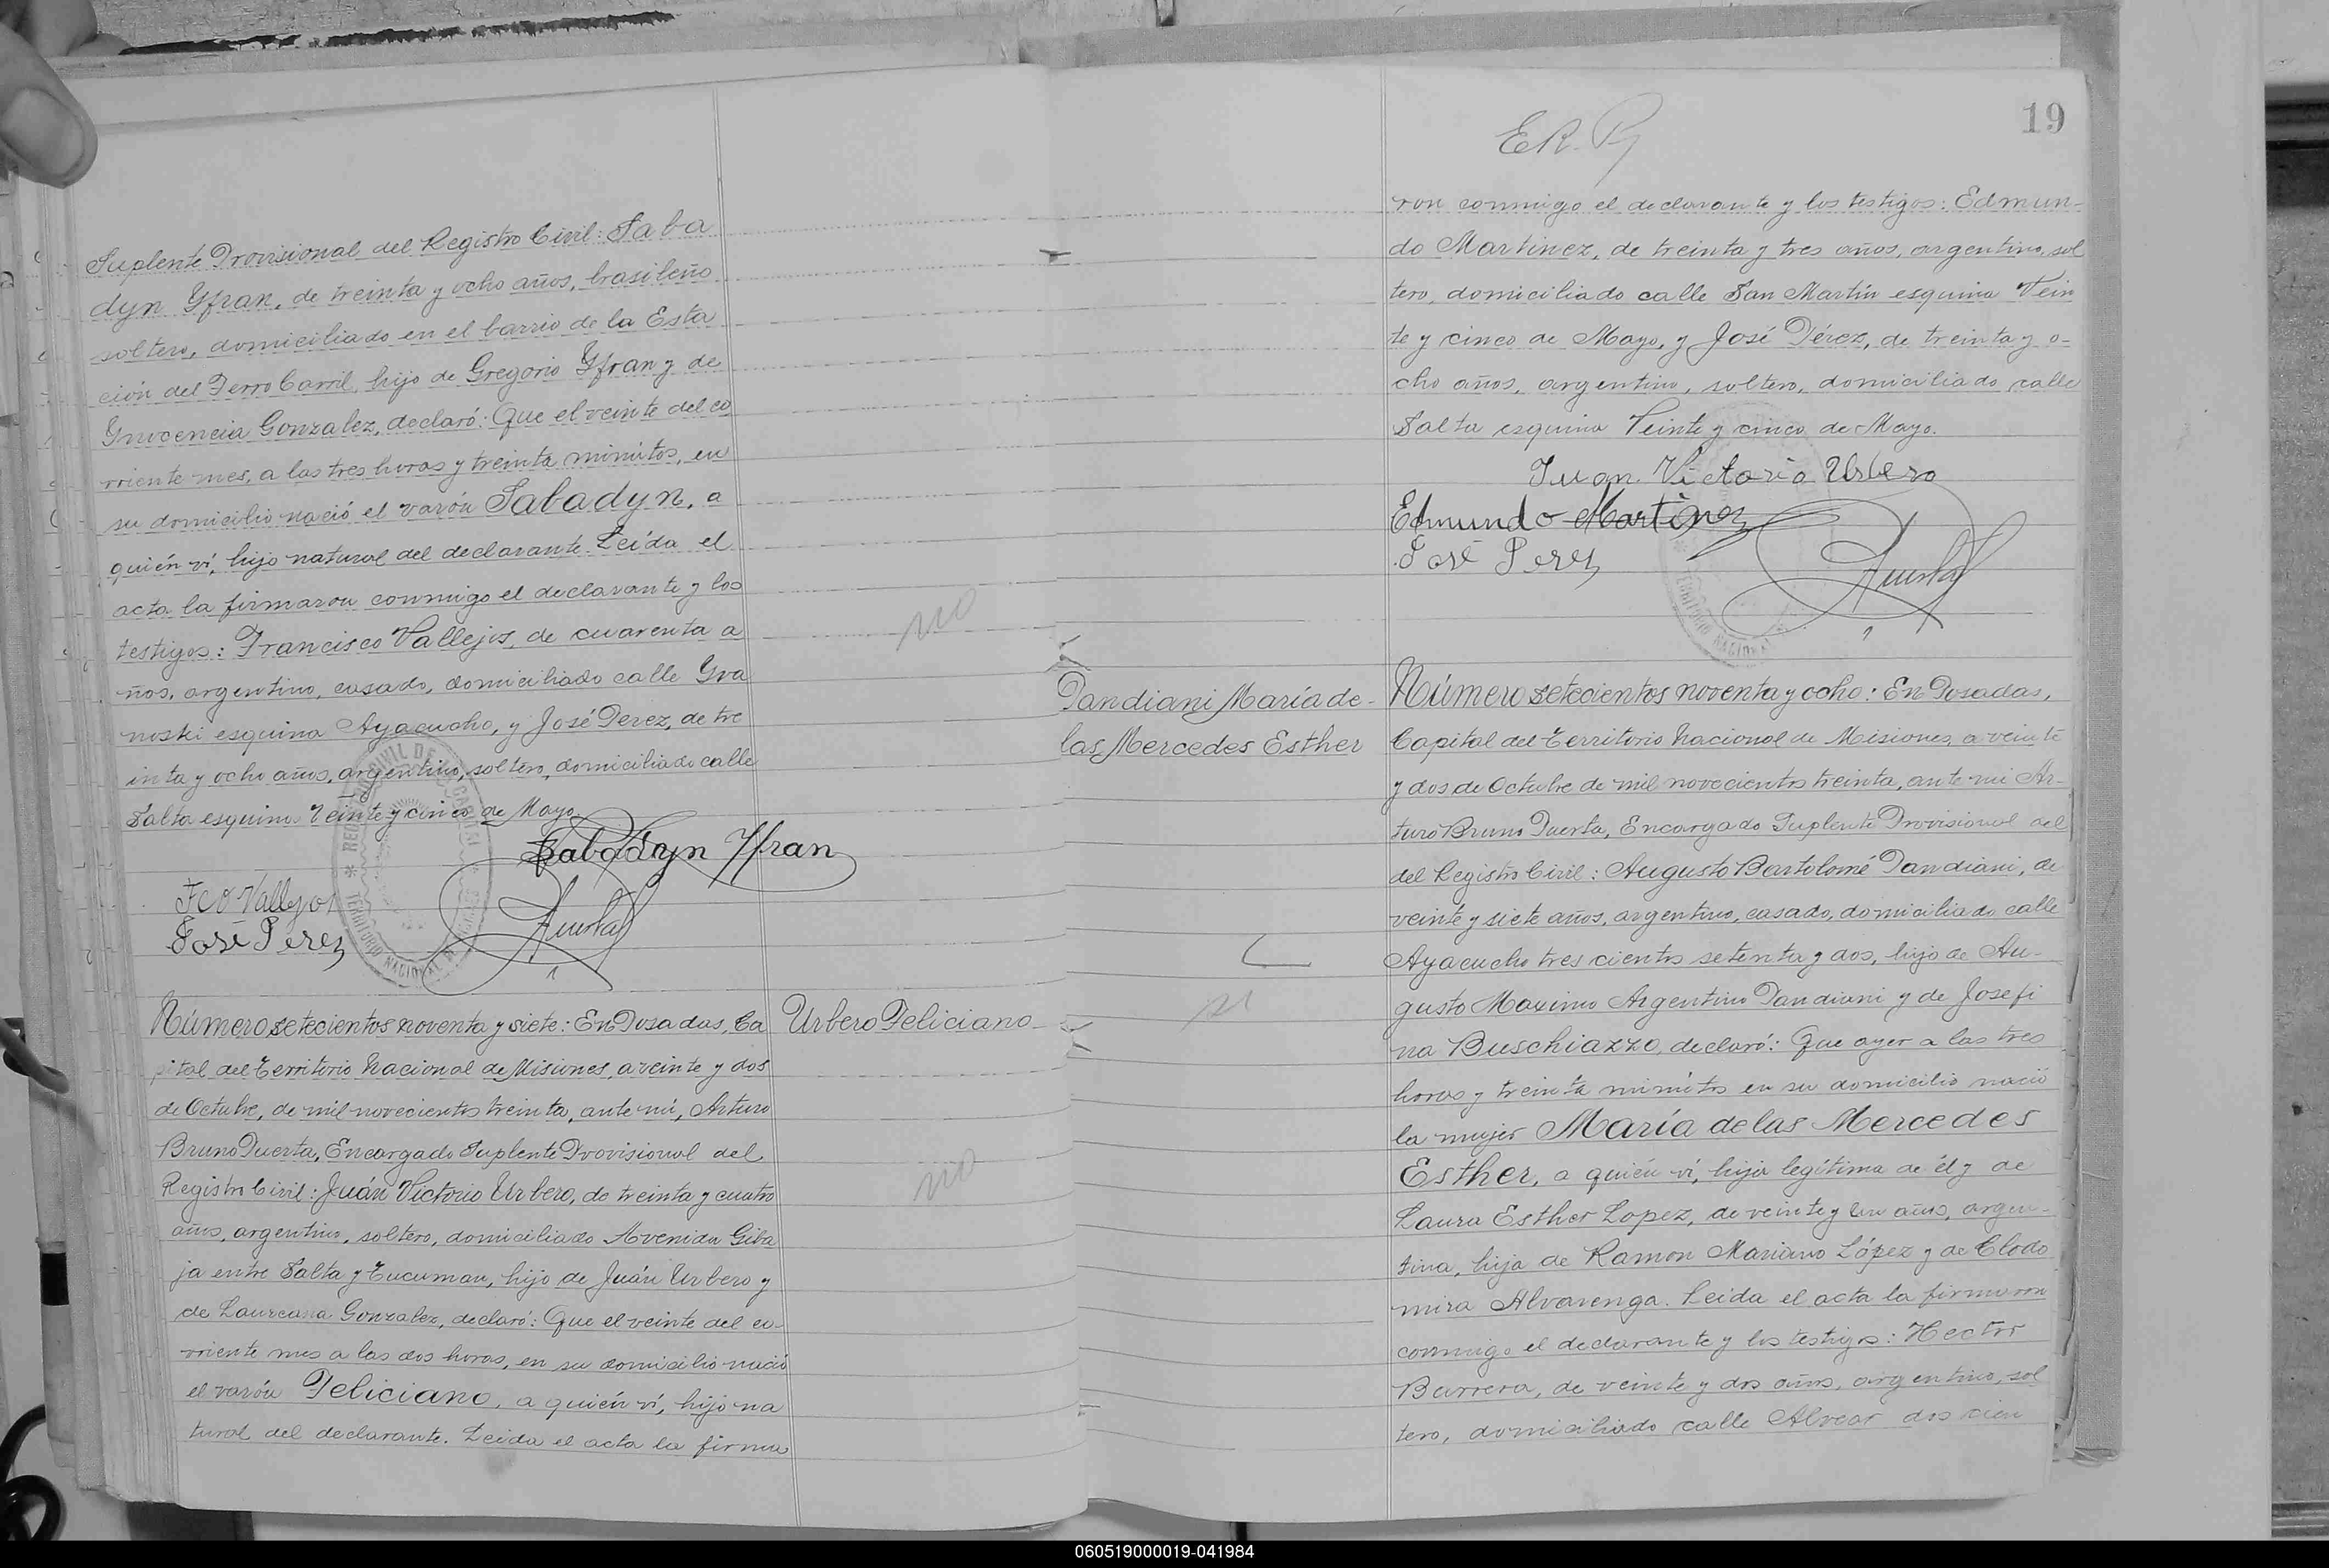 Suplente Provisional del Registro Civil: Saba
dyn Yfran, de treinta y ocho años, brasileño
soltero, domiciliado en el barrio de la Esta
ción del Ferro Carril, hijo de Gregorio Yfran y de
Ynocencia Gonzalez, declaró: Que el veinte del co
rriente mes, a las tres horas y treinta minutos, en
su domicilio nació el varón Sabadyn, a
quién ví, hijo natural del declarante. Leída el
acta la firmaron conmigo el declarante y los
testigos: Francisco Vallejos, de cuarenta a
ños, argentino, casado, domiciliado calle Gra
noski esquina Ayacucho, y José Perez, de tre
inta y ocho años, argentino, soltero, domiciliado calle
Salta esquina Veinte y cinco de Mayo
Sabadyn Yfran
Fco Vallejos
José Perez
Número setecientos noventa y siete: En Posadas, Ca
pital del Territorio Nacional de Misiones, a veinte y dos
de Octubre, de mil novecientos treinta, ante mí, Arturo
Bruno Puerta, Encargado Suplente Provisional del
Registro Civil: Juán Victorio Urbero, de treinta y cuatro
años, argentino, soltero, domiciliado Avenida Giba
ja entre Salta y Tucuman, hijo de Juán Urbero y
de Laureana Gonzalez, declaró: Que el veinte del co-
rriente mes a las dos horas, en su domicilio nació
el varón Feliciano, a quién ví, hijo na
tural del declarante. Leida el acta la firma
no
Urbero Feliciano
no
E.R.
19
ron conmigo el declarante y los testigos: Edmun-
do Martinez, de treinta y tres años, argentino, sol
tero, domiciliado calle San Martín esquina Vein
te y cinco de Mayo, y José Pérez, de treinta y o-
cho años, argentino, soltero, domiciliado calle
Salta esquina Veinte y cinco de Mayo.
Juan Victorio Urbero
Edmundo Martinez
José Perez
TERRITORIO NACIONAL
Pandiani María de-
las Mercedes Esther
Número setecientos noventa y ocho: En Posadas,
Capital del Territorio Nacional de Misiones, a veinte
y dos de Octubre de mil novecientos treinta, ante mi Ar-
turo Bruno Puerta, Encargado Suplente Provisional del
del Registro Civil: Augusto Bartolomé Pandiani, de
veinte y siete años, argentino, casado, domiciliado calle
Ayacucho trescientos setenta y dos, hijo de Au-
gusto Maximo Argentino Pandiani y de Josefi
na Buschiazzo, declaró: Que ayer a las tres
horas y treinta minutos en su domicilio nació
la mujer María de las Mercedes
Esther, a quién ví, hija legítima de él y de
Laura Esther Lopez, de veinte y un años, argen-
tina, hija de Ramon Mariano López y de Clodo
mira Alvarenga. Leida el acta la firmaron
conmigo el declarante y los testigos: Hector
Barrera, de veinte y dos años, argentino, sol
tero, domiciliado calle Alvear dos cien
060519000019-041984